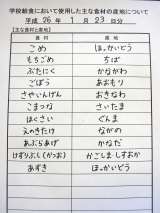 学校給食において使用した主な食材の産地について
平成 26 年 1 月 23 日分
【主な食材と産地】
食材 産地
こめ ほっかいどう
もちごめ ちば
ぶたにく かながわ
ごぼう あおもり
さやいんげん おきなわ
こまつな さいたま
はくさい ぐんま
えのきたけ ながの
あぶらあげ かながわ
けずりぶし(かつお) かごしま・しずおか
あずき ほっかいどう